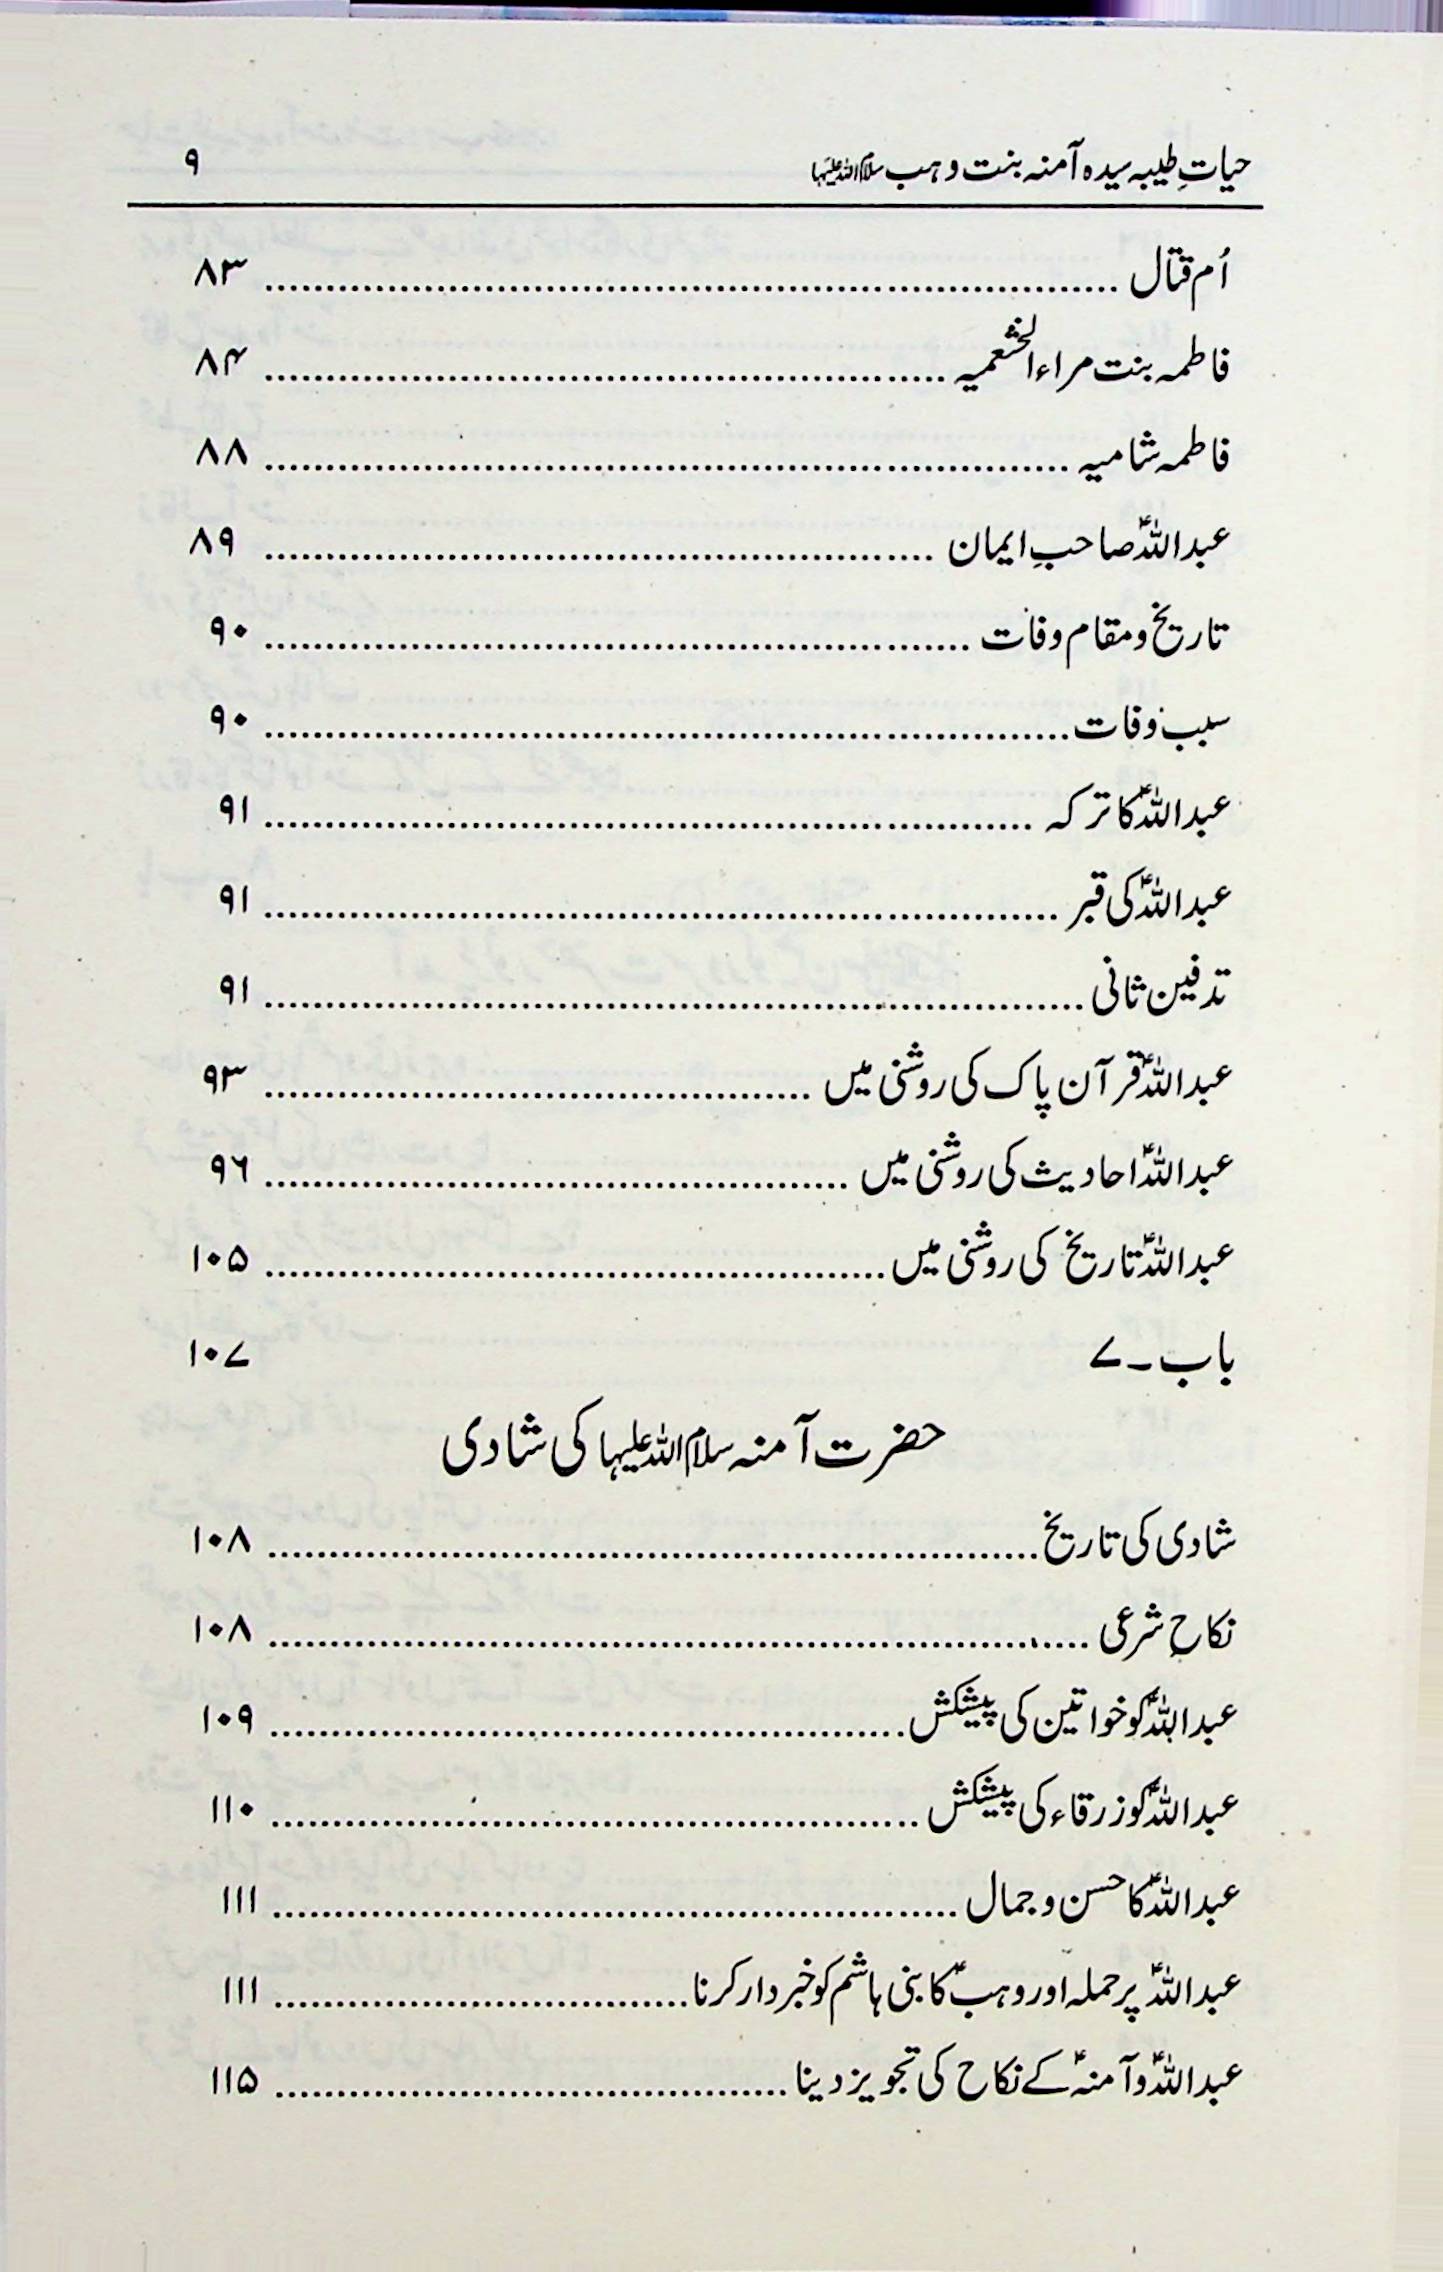 حیاتِ طیبہ سیدہ آمنہ بنت وہب سلام اللہ علیہا ۹
اُم قتال ........ ۸۳
فاطمہ بنت مراء الخثعمیہ ........ ۸۴
فاطمہ شامیہ ........ ۸۸
عبداللہؑ صاحبِ ایمان ........ ۸۹
تاریخ و مقام وفات ........ ۹۰
سبب وفات ........ ۹۰
عبداللہؑ کا ترکہ ........ ۹۱
عبداللہؑ کی قبر ........ ۹۱
تدفین ثانی ........ ۹۱
عبداللہؑ قرآن پاک کی روشنی میں ........ ۹۳
عبداللہؑ احادیث کی روشنی میں ........ ۹۶
عبداللہؑ تاریخ کی روشنی میں ........ ۱۰۵
باب ۔ ۷ ۱۰۷
حضرت آمنہ سلام اللہ علیہا کی شادی
شادی کی تاریخ ........ ۱۰۸
نکاحِ شرعی ........ ۱۰۸
عبداللہؑ کو خواتین کی پیشکش ........ ۱۰۹
عبداللہؑ کو زرقاء کی پیشکش ........ ۱۱۰
عبداللہؑ کا حسن و جمال ........ ۱۱۱
عبداللہؑ پر حملہ اور وہبؑ کا بنی ہاشم کو خبردار کرنا ........ ۱۱۱
عبداللہؑ و آمنہؑ کے نکاح کی تجویز دینا ........ ۱۱۵